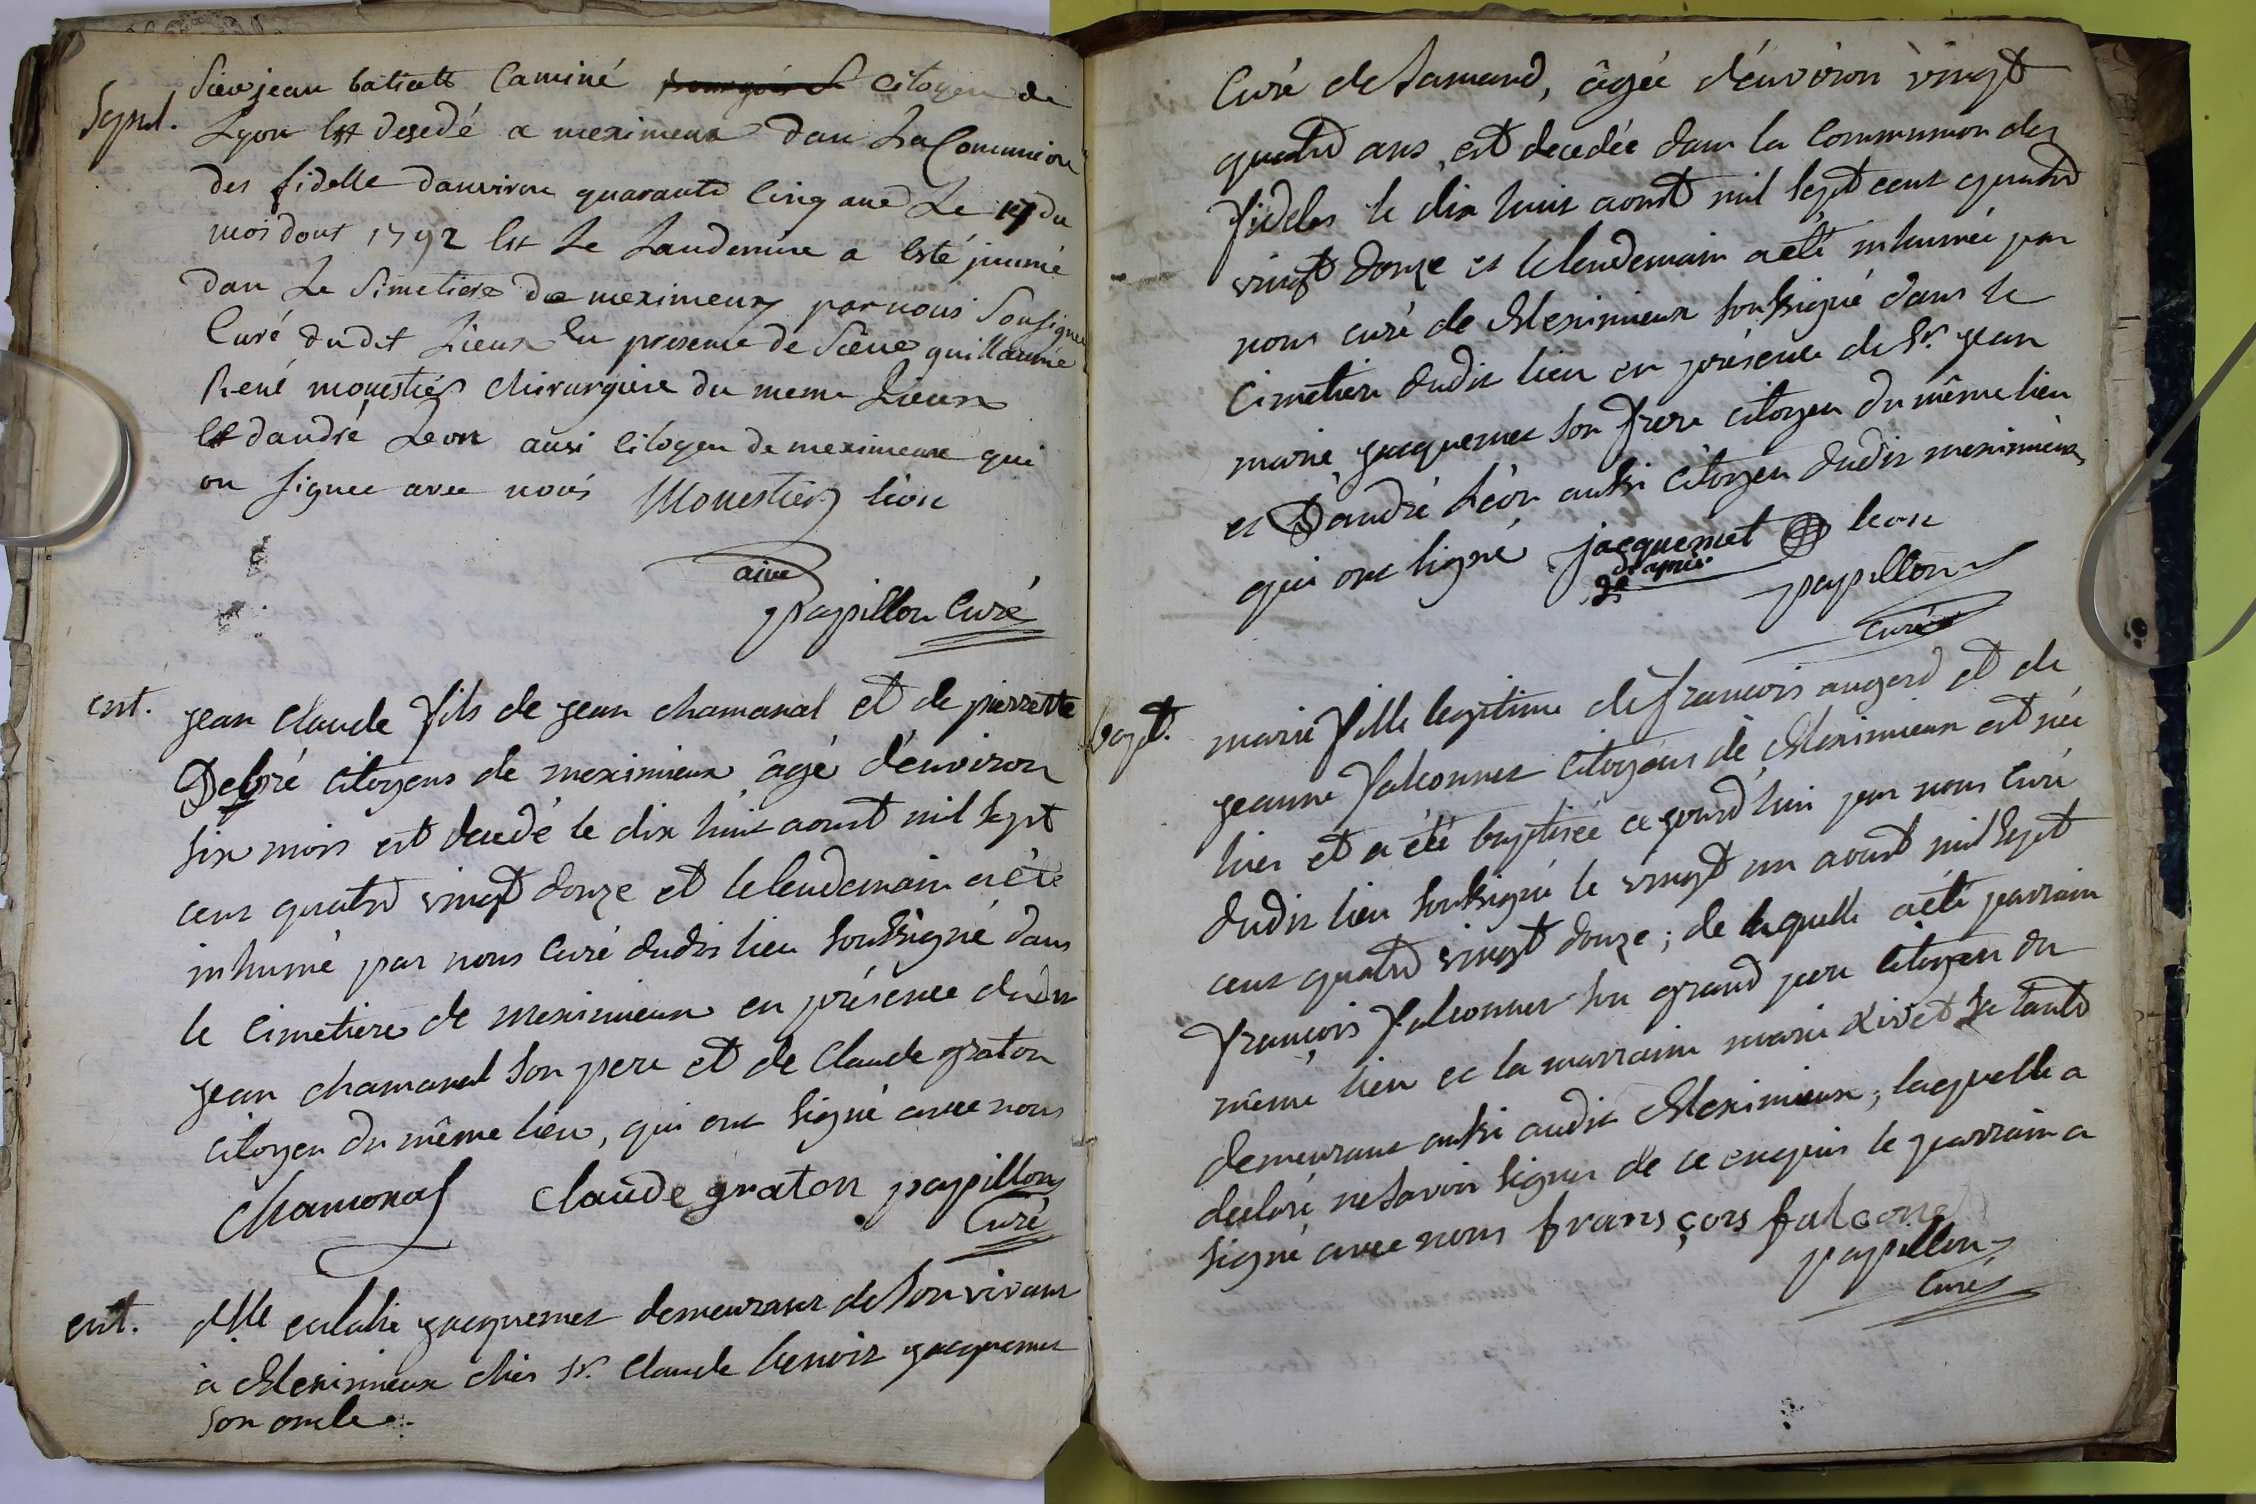 Sepul. Sieur jean batiste Caminé bourgois d citoyen de
Lyon Est desedé a meximeux dan La Communion
des fidelle danviron quarante Cinq ans Le 17 du
mois dout 1792 Est Le Landemin a Esté inumé
dan Le Simetiere de meximeux par nous Sousigné
Curé dudit Lieux En presense de Sieur guillaume
René mouestier Chirurgien du meme Lieux
Est dandré Leon ausi Citoyen de meximeux qui
on signee avec nous Mouestier léon
ainé
papillon Curé
ent. jean Claude fils de jean chamanal et de pierrette
Debré citoyens de meximieux âgé d'environ
six mois est decedé le dix huit aoust mil sept
cent quatre vingt douze et le lendemain a été
inhumé par nous Curé dudit lieu soussigné dans
le Cimetiere de meximieux en présence dudit
jean chamanal son pere et de Claude graton
citoyen du même lieu, qui ont signé avec nous
Chamonal Claude graton papillon
Curé
ent. dlle eulalie jacquemet demeurant de son vivant
à Meximieux chès Sr. Claude benoit jacquemet
son oncle
Curé de Samand, âgée d'environ vingt
quatre ans, est decedée dans la Communion des
fideles le dix huit aoust mil sept cent quatre
vingt douze et le lendemain a été inhumée par
nous curé de Meximieux soussigné dans le
Cimetiere dudit lieu en présence de Sr. jean
marie jacquemet son frere citoyen du même lieu
et D'andré Léon aussi citoyen dudit meximieux
qui ont signé jacquemet leon
papillon
Curé
bapt. marie fille legitime de francois augerd et de
jeanne falconnet citoyens de Meximieux est née
hier et a été baptisée ce jourd'hui par nous Curé
dudit lieu soussigné le vingt un aoust mil sept
cent quatre vingt douze; de laquelle a été parrain
françois falconnet son grand pere Citoyen du
même lieu et la marraine marie Rivet sa tante
demeurant aussi audit Meximieux, laquelle a
declaré ne savoir signer de ce enquis le parrain a
signé avec nous fransçois falcone
papillon
Curé